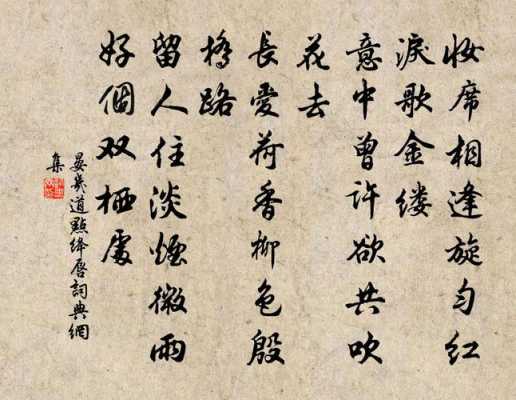 妆席相逢旋匀红
淚歌金缕
意中曾许欲共吹
花去
長愛荷香柳色殷
橋路
留人住淡煙微雨
好個双栖處
晏幾道點絳唇詞典網
集